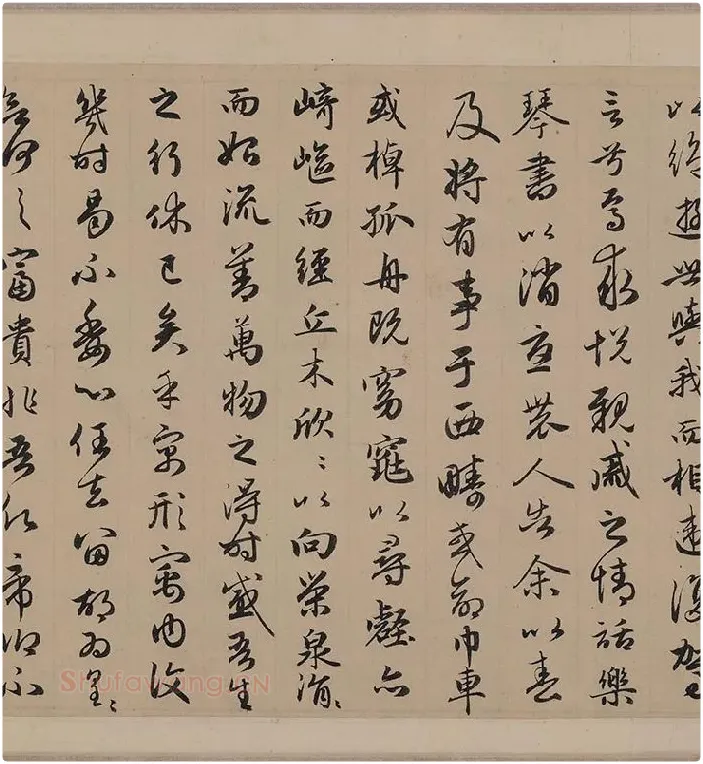 以絶遊世與我而相違復駕
言兮焉求悦親戚之情話樂
琴書以消憂農人告余以春
及將有事于西疇或命巾車
或棹孤舟既窈窕以尋壑亦
崎嶇而經丘木欣〻以向榮泉涓〻
而始流善萬物之得時感吾生
之行休已矣乎寓形寓内復
幾時曷不委心任去留胡為皇〻
何之富貴非吾願帝鄉不
Shufawang.CN